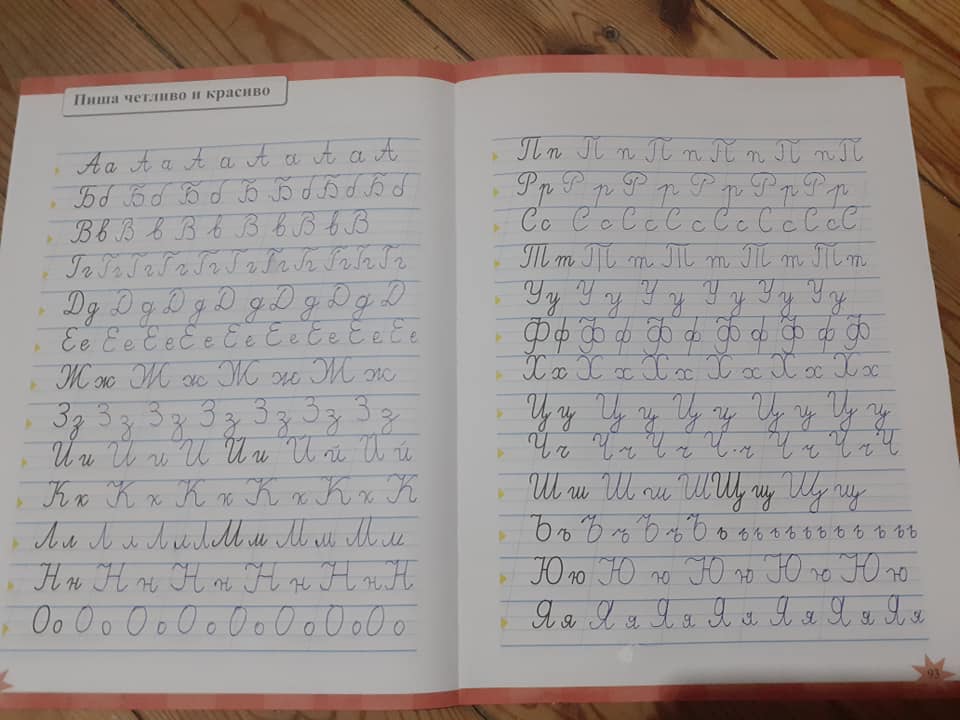 Пиша четливо и красиво
Аа А а А а А а А а А
Бб Б б Б б Б Б б Б б Б б
Вв В в В в В в В в В
Гг Гг Гг Гг Гг Гг Гг Гг Гг Гг Гг
Дд Д д Д д Д д Д д Д д Д
Ее Е е Е е Е е Е е Е е Е е Е е Е е
Жж Ж ж Ж ж Ж ж
Зз З з З з З з З з З з З з
Ии И и И Йй Й й Й й
Кк К к К к К к К к К
Лл Л л Л л Л Мм М м М м
Нн Н н Н н Н н Н н Н
Оо О о О о О о О о О о О о О о
Пп П п П п П п П п П
Рр Р р Р р Р р Р р Р р
Сс С с С с С с С с С с С с С
Тт Т т Т т Т т Т т
Уу У у У у У у У у У у
Фф Ф ф Ф ф Ф ф Ф ф Ф
Хх Х х Х х Х х Х х Х х
Цц Ц ц Ц ц Ц ц Ц ц
Чч Ч ч Ч ч Ч ч Ч ч Ч ч Ч
Шш Ш ш Ш Щщ Щ щ
Ъъ Ъ ъ Ъ ъ Ъ ь ъ ъ ъ ъ ъ ъ ъ ъ ъ ъ
Юю Ю ю Ю ю Ю ю Ю ю
Яя Я я Я я Я я Я я Я я Я я
93